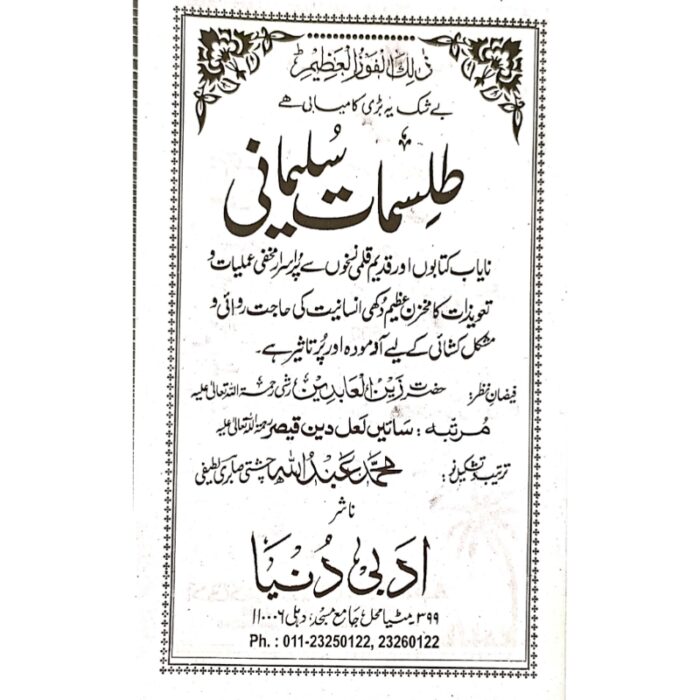 ذٰلِکَ الْفَوْزُ الْعَظِیْمُ
بے شک یہ بڑی کامیابی ہے
طلِسمات سُلیمانی
نایاب کتابوں اور قدیم قلمی نسخوں سے پُراسرار مخفی عملیات و
تعویذات کا مخزن عظیم دُکھی انسانیت کی حاجت روائی و
مشکل کشائی کے لیے آزمودہ اور پُرتاثیر ہے۔
فیضانِ نظر: حضرت زین العابدین رشی رحمۃ اللہ تعالیٰ علیہ
مرتبہ: سائیں لعل دین قیصر رحمۃ اللہ تعالیٰ علیہ
ترتیب و تشکیل نو: محمد عبداللہ چشتی صابری لطیفی
ناشر
ادبی دُنیا
۳۹۹ مٹیا محل، جامع مسجد، دہلی ۱۱۰۰۰۶
Ph. : 011-23250122, 23260122